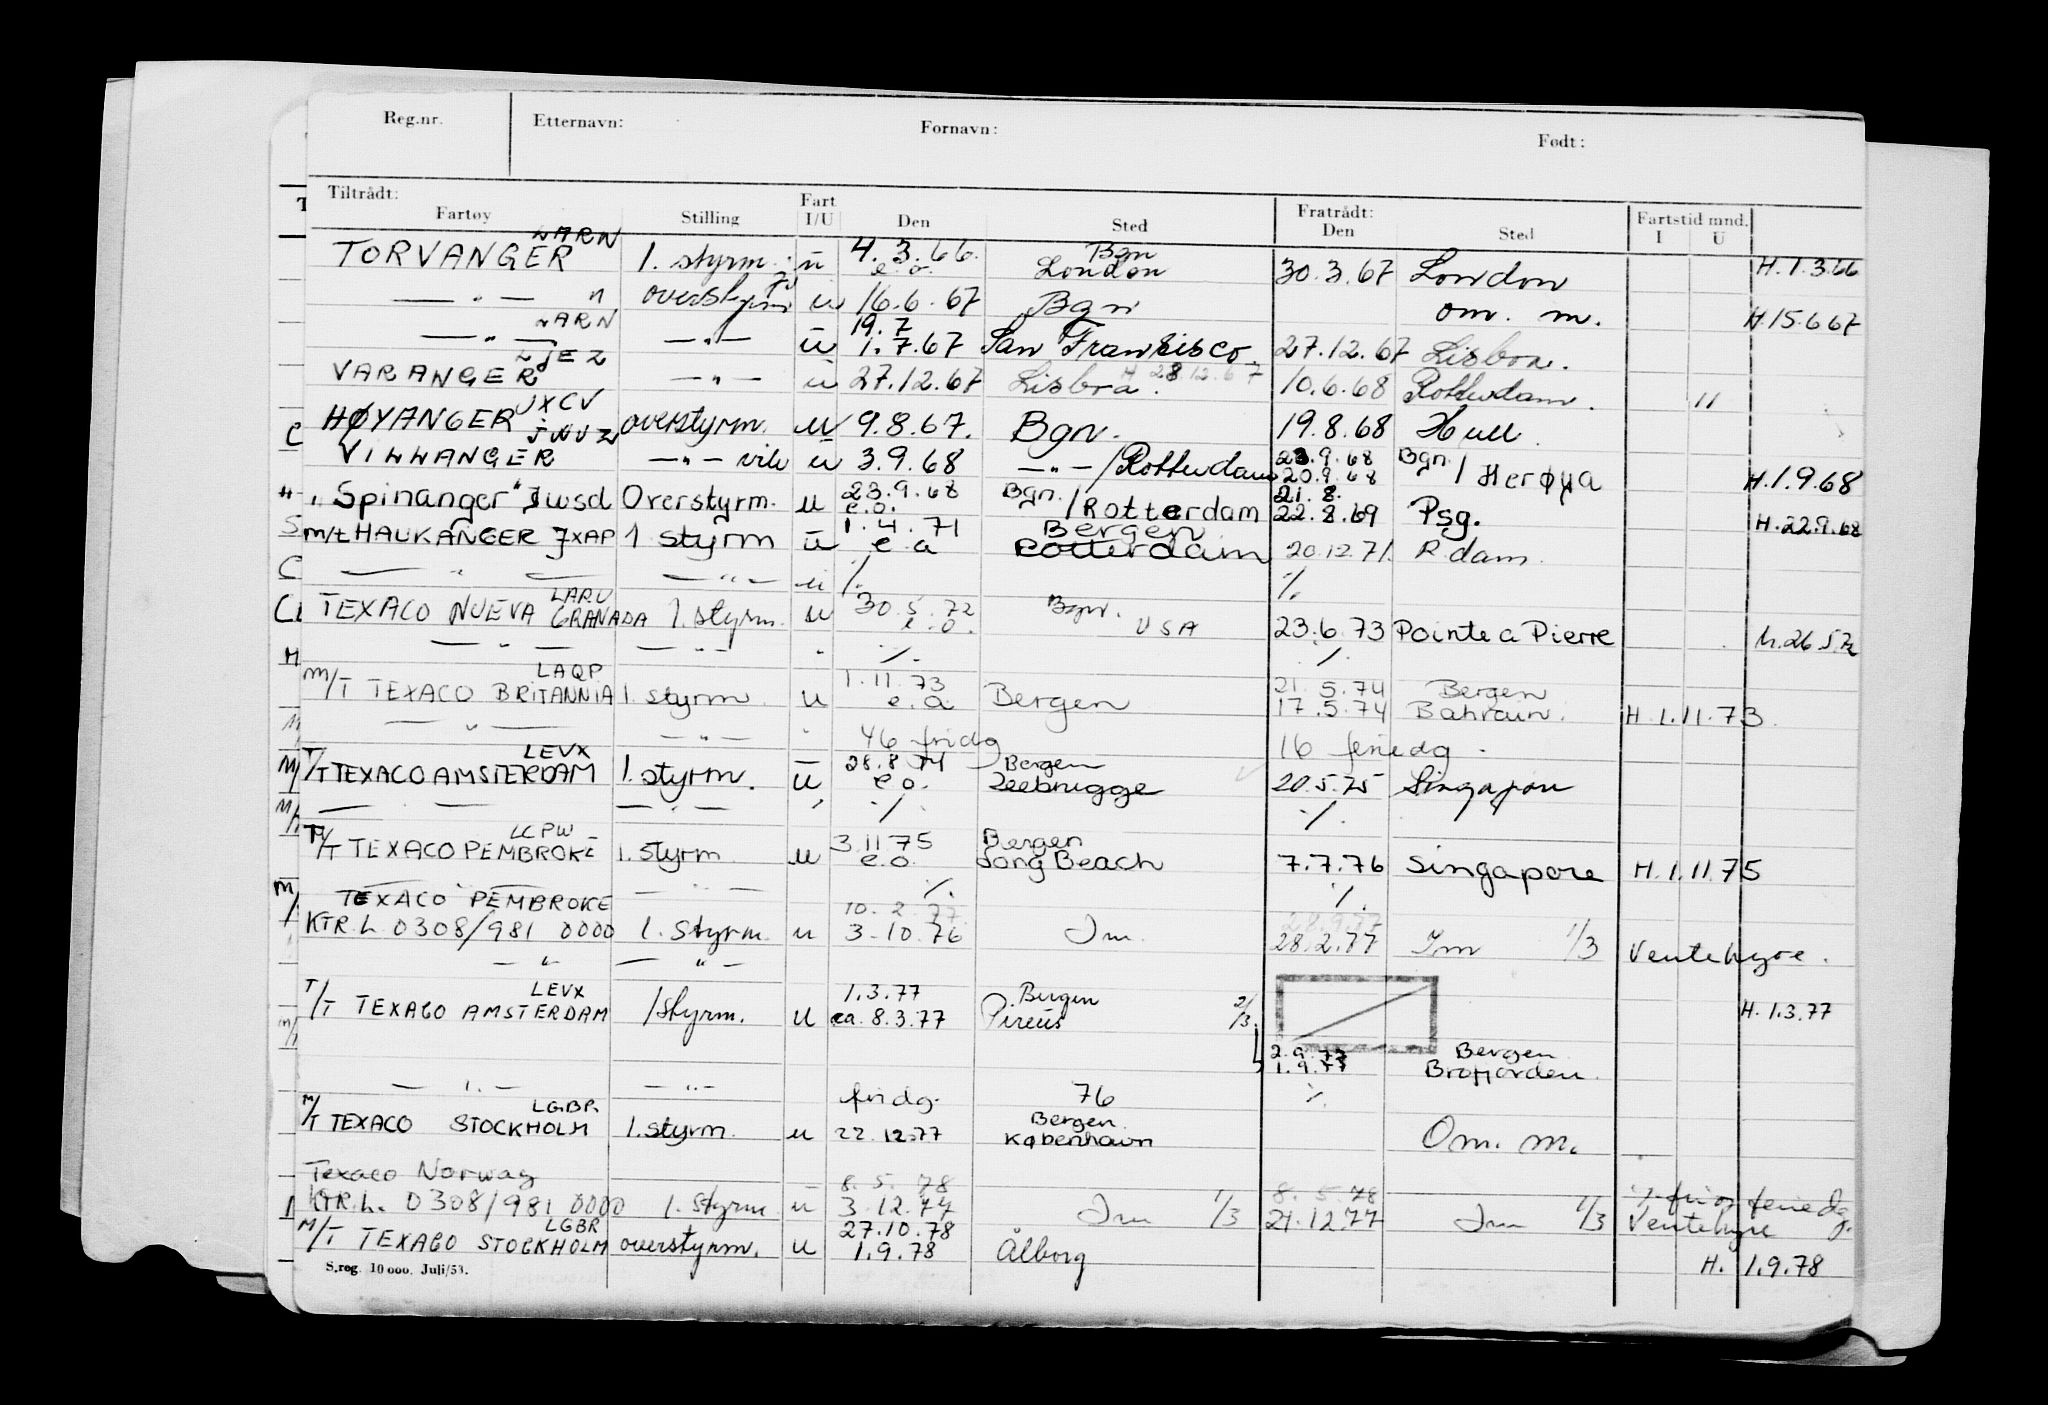 Reg.nr. Etternavn: Fornavn: Født:
Tiltrådt: Fart Fratrådt: Fartstid mnd.
Fartøy Stilling I/U Den Sted Den Sted I U
LARN
TORVANGER 1. styrm. u 4.3.66. e.o. Bgn London 30.3.67 London H.1.3.66
— " — " overstyrm u 16.6.67 Bgn om. m. H.15.6.67
LARN 19.7
— " — — " — u 1.7.67 San Fransisco. 27.12.67 Lisboa.
LJEZ
VARANGER — " — u 27.12.67 Lisboa. H 28.12.67 10.6.68 Rotterdam. "
JXCV
HØYANGER overstyrm. u 9.8.67. Bgn. 19.8.68 Hull.
JWUZ
VILLANGER — " — vik u 3.9.68 — " — / Rotterdam 23.9.68 20.9.68 Bgn / Herøya H.1.9.68
" Spinanger" Jwsd Overstyrm. u 23.9.68 e.o. Bgn. / Rotterdam 21.8. 22.8.69 Psg. H.22.9.68
m/t HAUKANGER JXAP 1 styrm u 1.4.71 e.a Bergen Rotterdam 20.12.71. R.dam.
— " — — " — u /. /.
LAPU
TEXACO NUEVA GRANADA 1. styrm. u 30.5.72 e.o. Bgn. USA 23.6.73 Pointe a Pierre h.26.5.72
— " — — " — " /. /.
LAQP
M/T TEXACO BRITANNIA 1. styrm. u 1.11.73 e.a. Bergen 21.5.74 17.5.74 Bergen Bahrain. H.1.11.73.
— " — — " — " 46 fridg 16 feriedg.
LEVX
T/T TEXACO AMSTERDAM 1. styrm. u 28.8.74 e.o. Bergen Zeebrugge 20.5.75 Singapore
— — — " — /. /.
LCPW
T/T TEXACO PEMBROKE 1. styrm u 3.11.75 e.o. Bergen Long Beach 7.7.76 Singapore H.1.11.75
— " — — " — /. /.
TEXACO PEMBROKE 10.2.77. 28.9.77
KTR.L. 0308/981 0000 1. styrm. u 3.10.76 Im. 28.2.77 Im 1/3 Ventehyre.
— " — — " —
LEVX
T/T TEXACO AMSTERDAM 1 styrm. u 1.3.77 ea. 8.3.77 Bergen Pireus 2/3. H.1.3.77
2.9.77 Bergen
1.9.77 Brofjorden.
— " — — " — fridg. 76 /.
LGBR
M/T TEXACO STOCKHOLM 1. styrm. u 22.12.77 Bergen København Om. m.
Texaco Norway 8.5.78 8.5.78 /. fri og feriedg.
KTR.L. 0308/981 0000 1. styrm u 3.12.77 Im 1/3 21.12.77 Im 1/3 Ventehyre
LGBR
M/T TEXACO STOCKHOLM overstyrm. u 27.10.78 1.9.78 Ålborg H. 1.9.78
S.reg. 10 000. Juli/53.